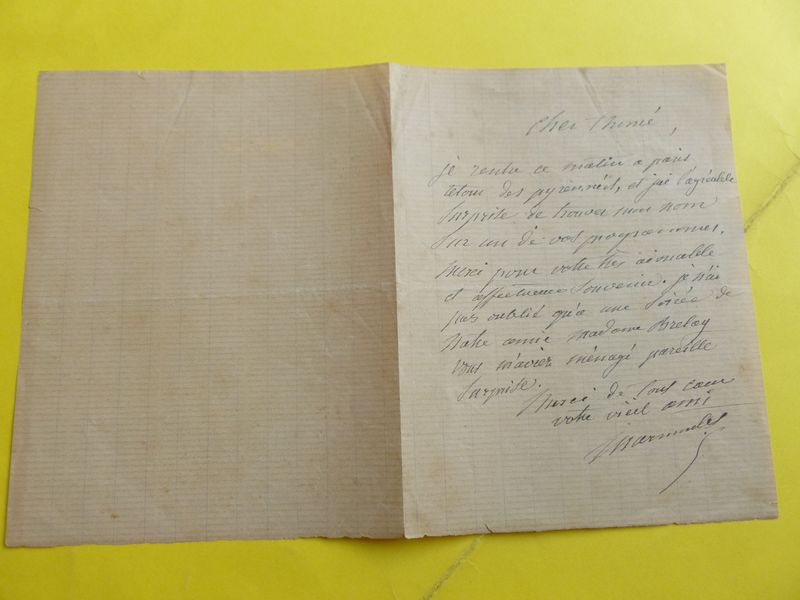 Cher
je rentre ce matin a paris
retour des pyrennées, et j'ai l'agréable
surprise de trouver mon nom
sur un de vos programmes.
merci pour votre très aimable
et affectueux souvenir. je n'ai
pas oublié qu'a une soirée de
notre amie Madame
vous m'aviez ménagé pareille
surprise.
Merci de tout cœur
votre vieil ami